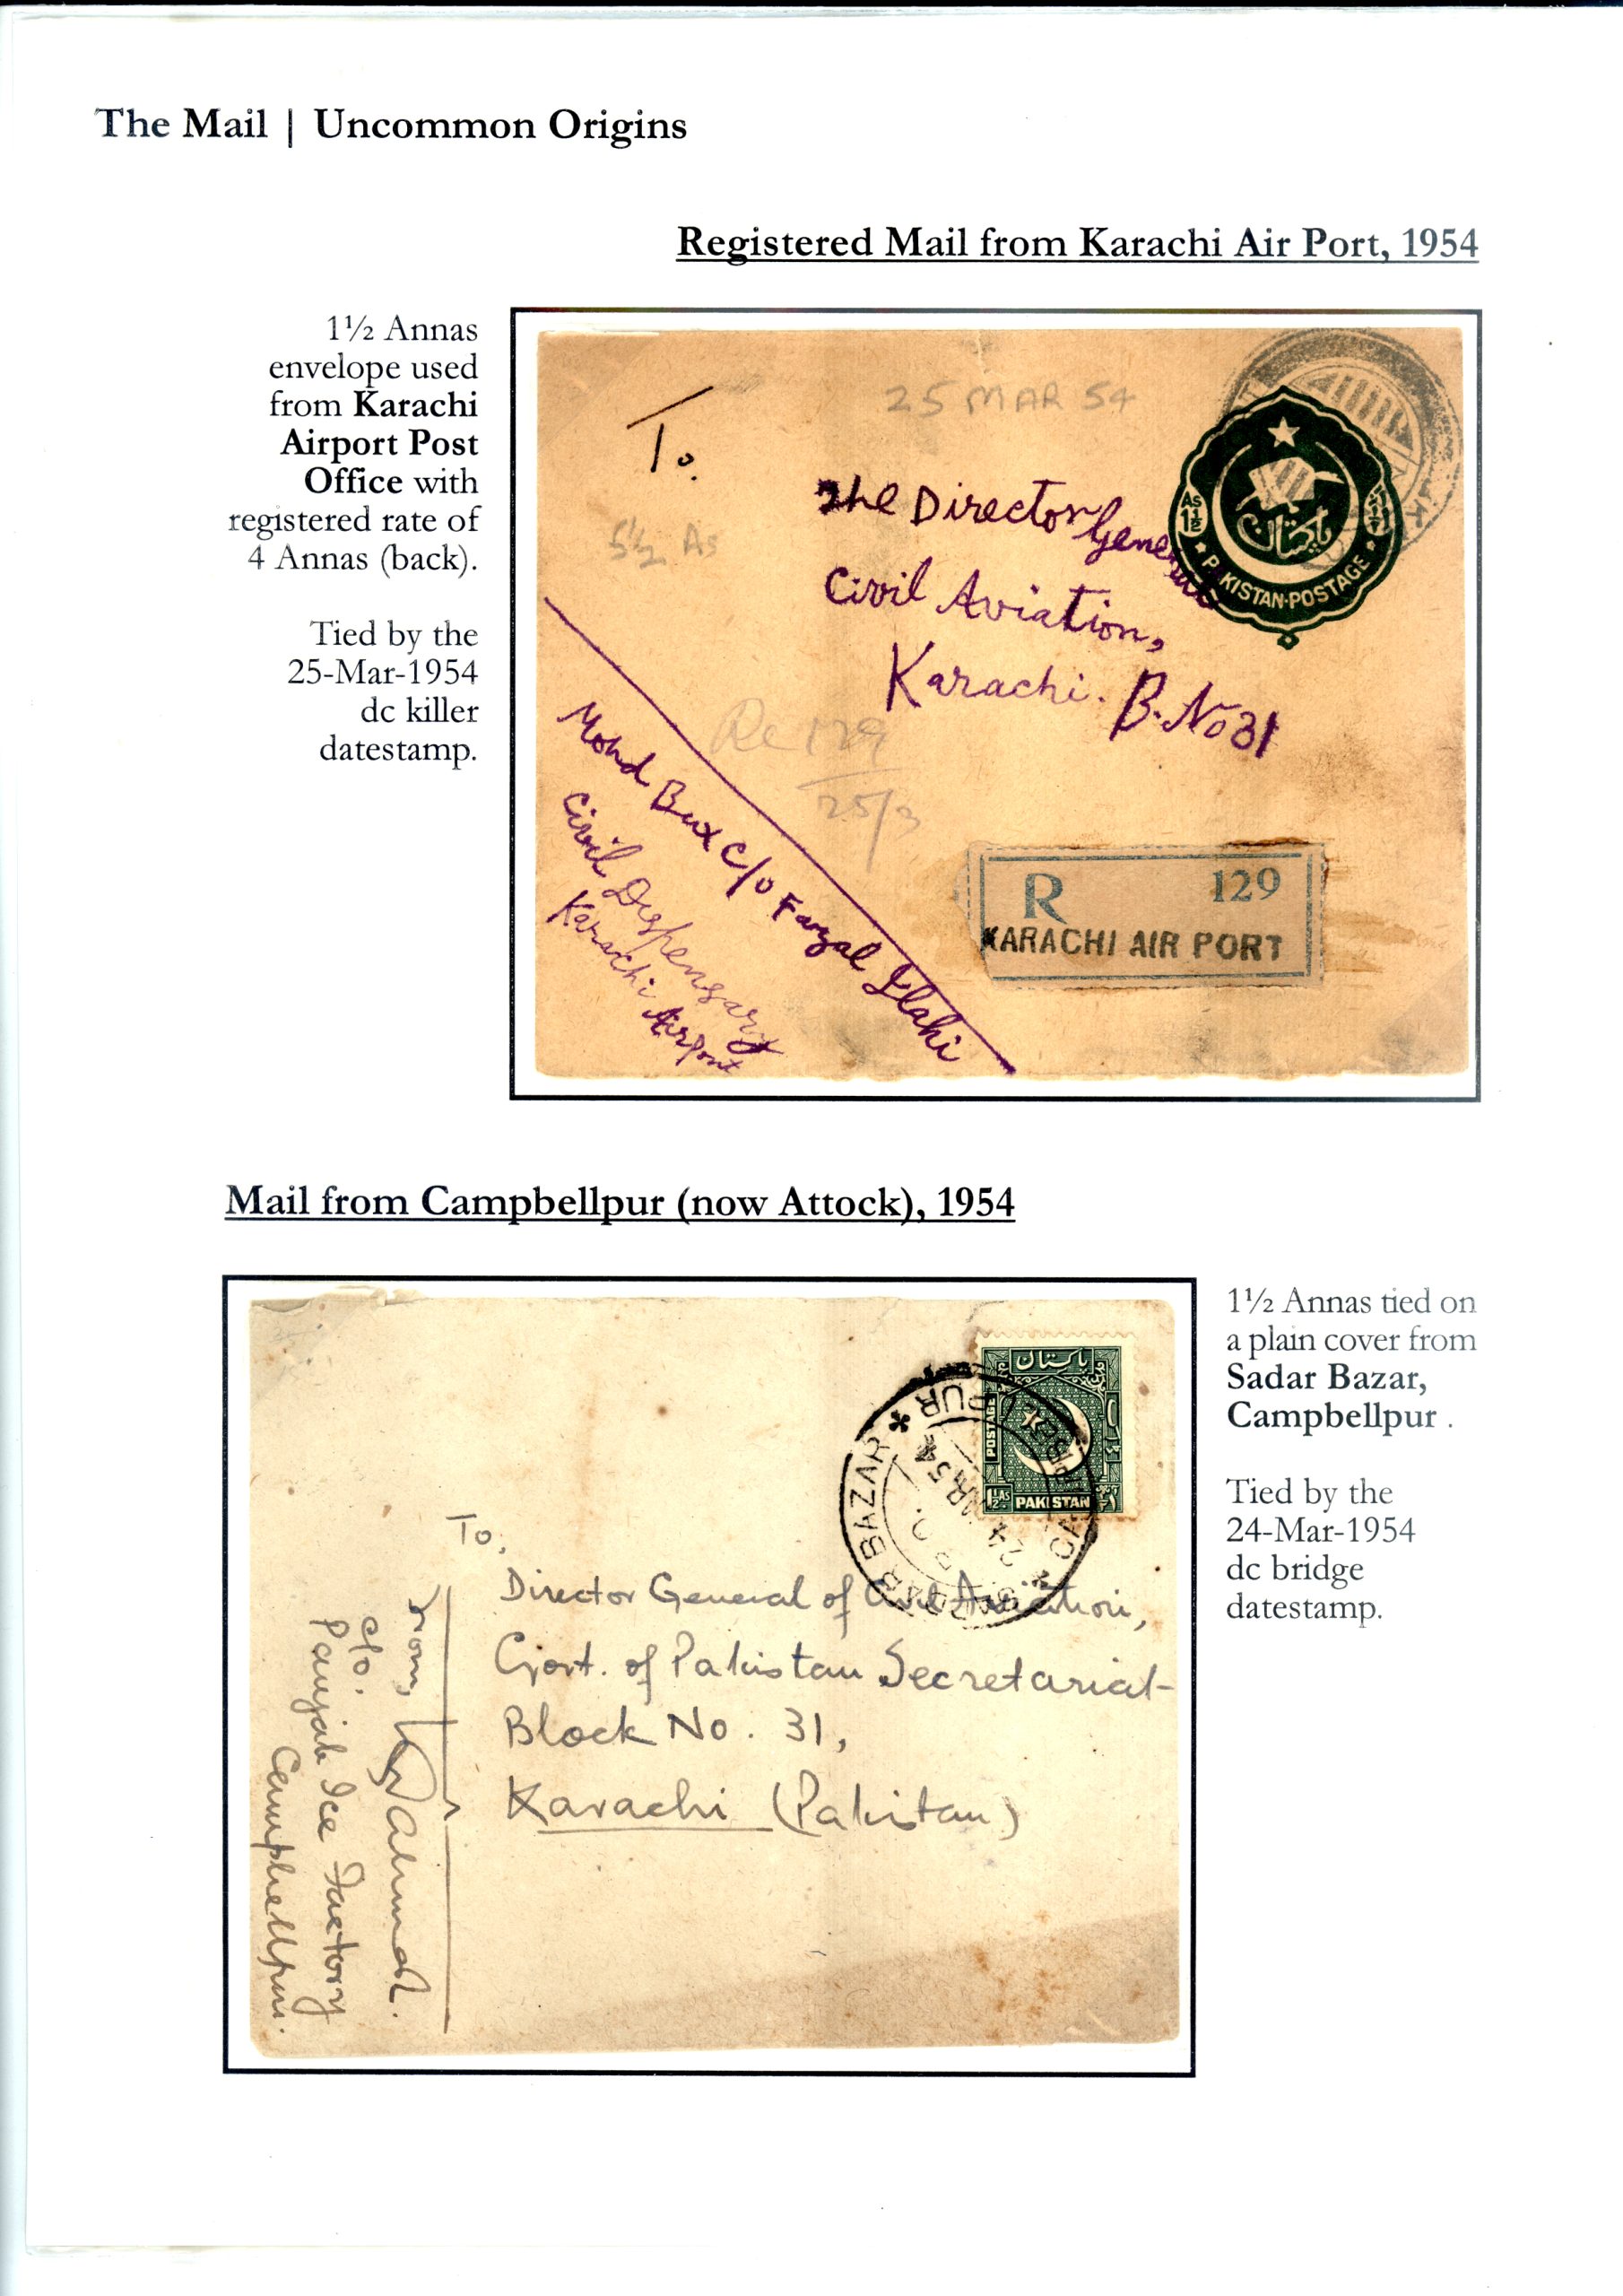 The Mail | Uncommon Origins
Registered Mail from Karachi Air Port, 1954
1½ Annas
envelope used
from Karachi
Airport Post
Office with
registered rate of
4 Annas (back).
Tied by the
25-Mar-1954
dc killer
datestamp.
25 MAR 54
To.
5½ As
The Director General
Civil Aviation,
Karachi. B. No 31
As 1½
پاکستان
PAKISTAN·POSTAGE
Re 129
25/3
Mohd Bux C/o Fazal Ilahi
Civil Dispensary
Karachi Airport
R 129
KARACHI AIR PORT
Mail from Campbellpur (now Attock), 1954
1½ Annas tied on
a plain cover from
Sadar Bazar,
Campbellpur .
Tied by the
24-Mar-1954
dc bridge
datestamp.
پاکستان
POSTAGE
1½ As
PAKISTAN
SADAR BAZAR
CAMPBELLPUR
24 MAR 54
To,
Director General of Civil Aviation,
Govt. of Pakistan Secretariat
Block No. 31,
Karachi (Pakistan)
From,
Ahmad.
c/o.
Panjab Ice Factory
Campbellpur.